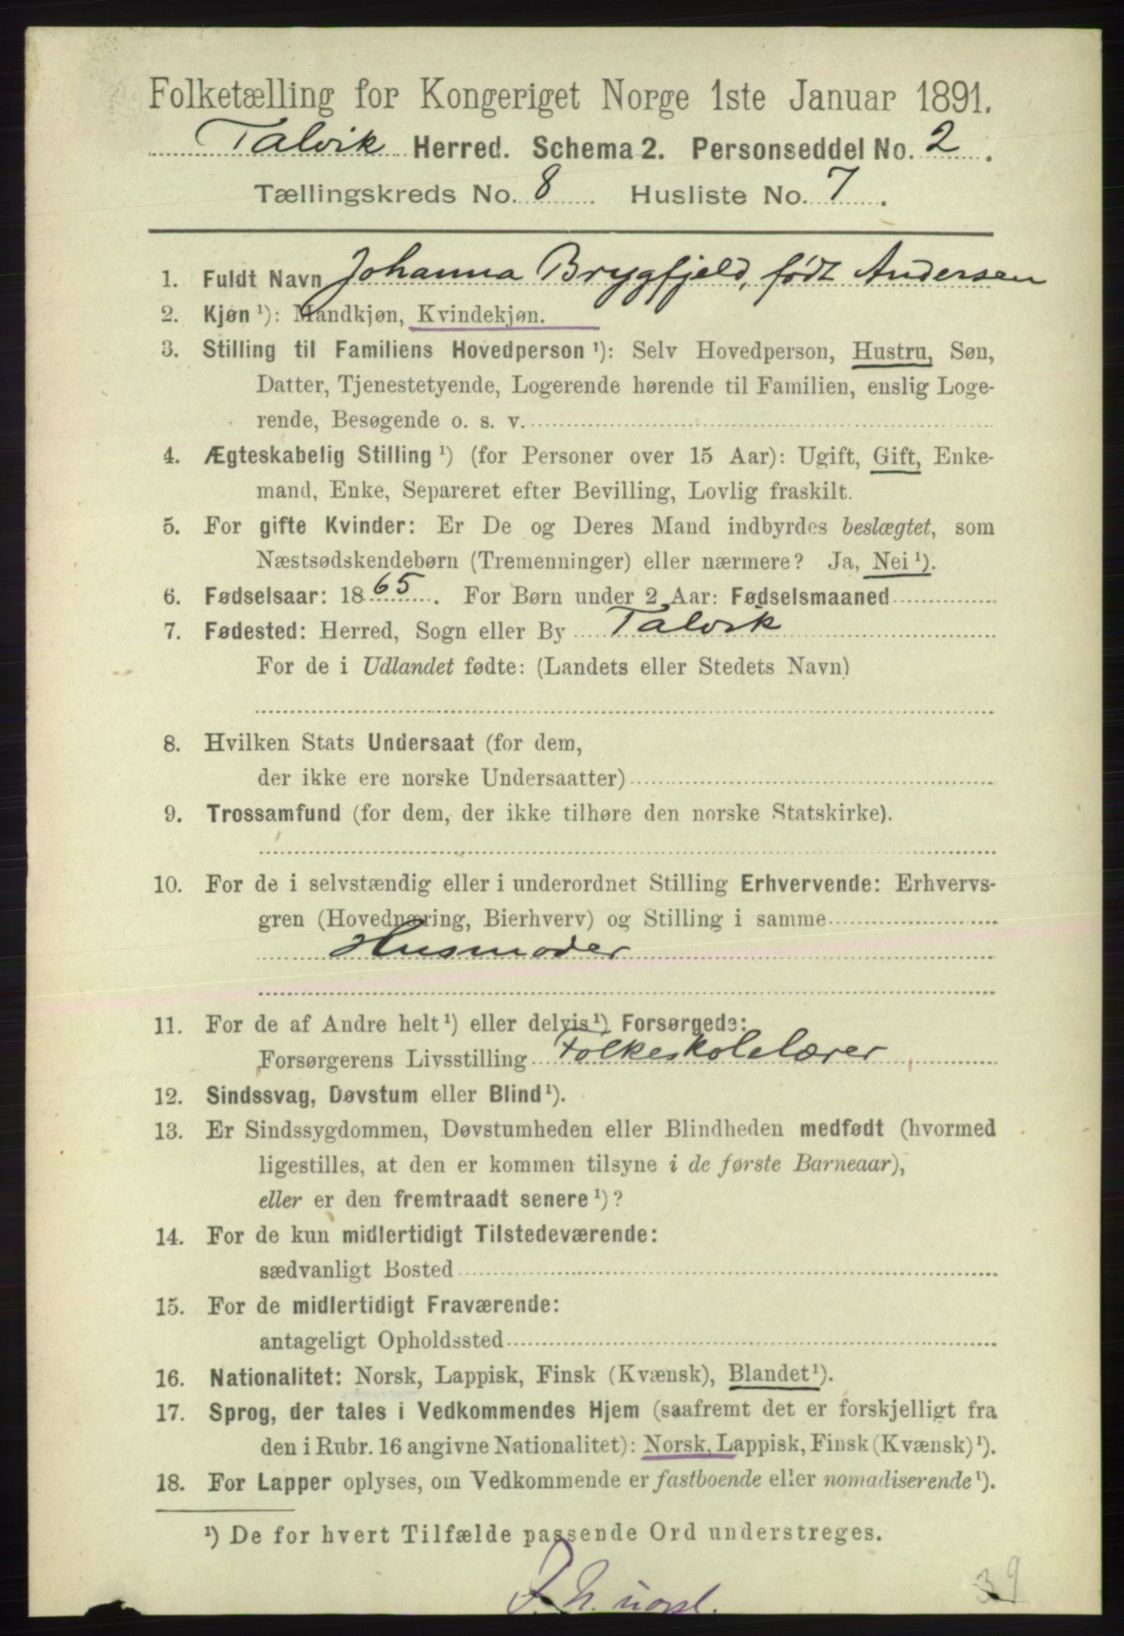 Folketælling for Kongeriget Norge 1ste Januar 1891.
Talvik Herred. Schema 2. Personseddel No. 2.
Tællingskreds No. 8 Husliste No. 7.
1. Fuldt Navn Johanna Brygfjeld, født Andersen
2. Kjøn ¹): Mandkjøn, Kvindekjøn.
3. Stilling til Familiens Hovedperson ¹): Selv Hovedperson, Hustru, Søn,
Datter, Tjenestetyende, Logerende hørende til Familien, enslig Loge-
rende, Besøgende o. s. v.
4. Ægteskabelig Stilling ¹) (for Personer over 15 Aar): Ugift, Gift, Enke-
mand, Enke, Separeret efter Bevilling, Lovlig fraskilt.
5. For gifte Kvinder: Er De og Deres Mand indbyrdes beslægtet, som
Næstsødskendebørn (Tremenninger) eller nærmere? Ja, Nei ¹).
6. Fødselsaar: 1865. For Børn under 2 Aar: Fødselsmaaned
7. Fødested: Herred, Sogn eller By Talvik
For de i Udlandet fødte: (Landets eller Stedets Navn)
8. Hvilken Stats Undersaat (for dem,
der ikke ere norske Undersaatter)
9. Trossamfund (for dem, der ikke tilhøre den norske Statskirke).
10. For de i selvstændig eller i underordnet Stilling Erhvervende: Erhvervs-
gren (Hovednæring, Bierhverv) og Stilling i samme
Husmoder
11. For de af Andre helt ¹) eller delvis ¹) Forsørgede:
Forsørgerens Livsstilling Folkeskolelærer
12. Sindssvag, Døvstum eller Blind ¹).
13. Er Sindssygdommen, Døvstumheden eller Blindheden medfødt (hvormed
ligestilles, at den er kommen tilsyne i de første Barneaar),
eller er den fremtraadt senere ¹)?
14. For de kun midlertidigt Tilstedeværende:
sædvanligt Bosted
15. For de midlertidigt Fraværende:
antageligt Opholdssted
16. Nationalitet: Norsk, Lappisk, Finsk (Kvænsk), Blandet ¹).
17. Sprog, der tales i Vedkommendes Hjem (saafremt det er forskjelligt fra
den i Rubr. 16 angivne Nationalitet): Norsk, Lappisk, Finsk (Kvænsk) ¹).
18. For Lapper oplyses, om Vedkommende er fastboende eller nomadiserende ¹).
¹) De for hvert Tilfælde passende Ord understreges.
39